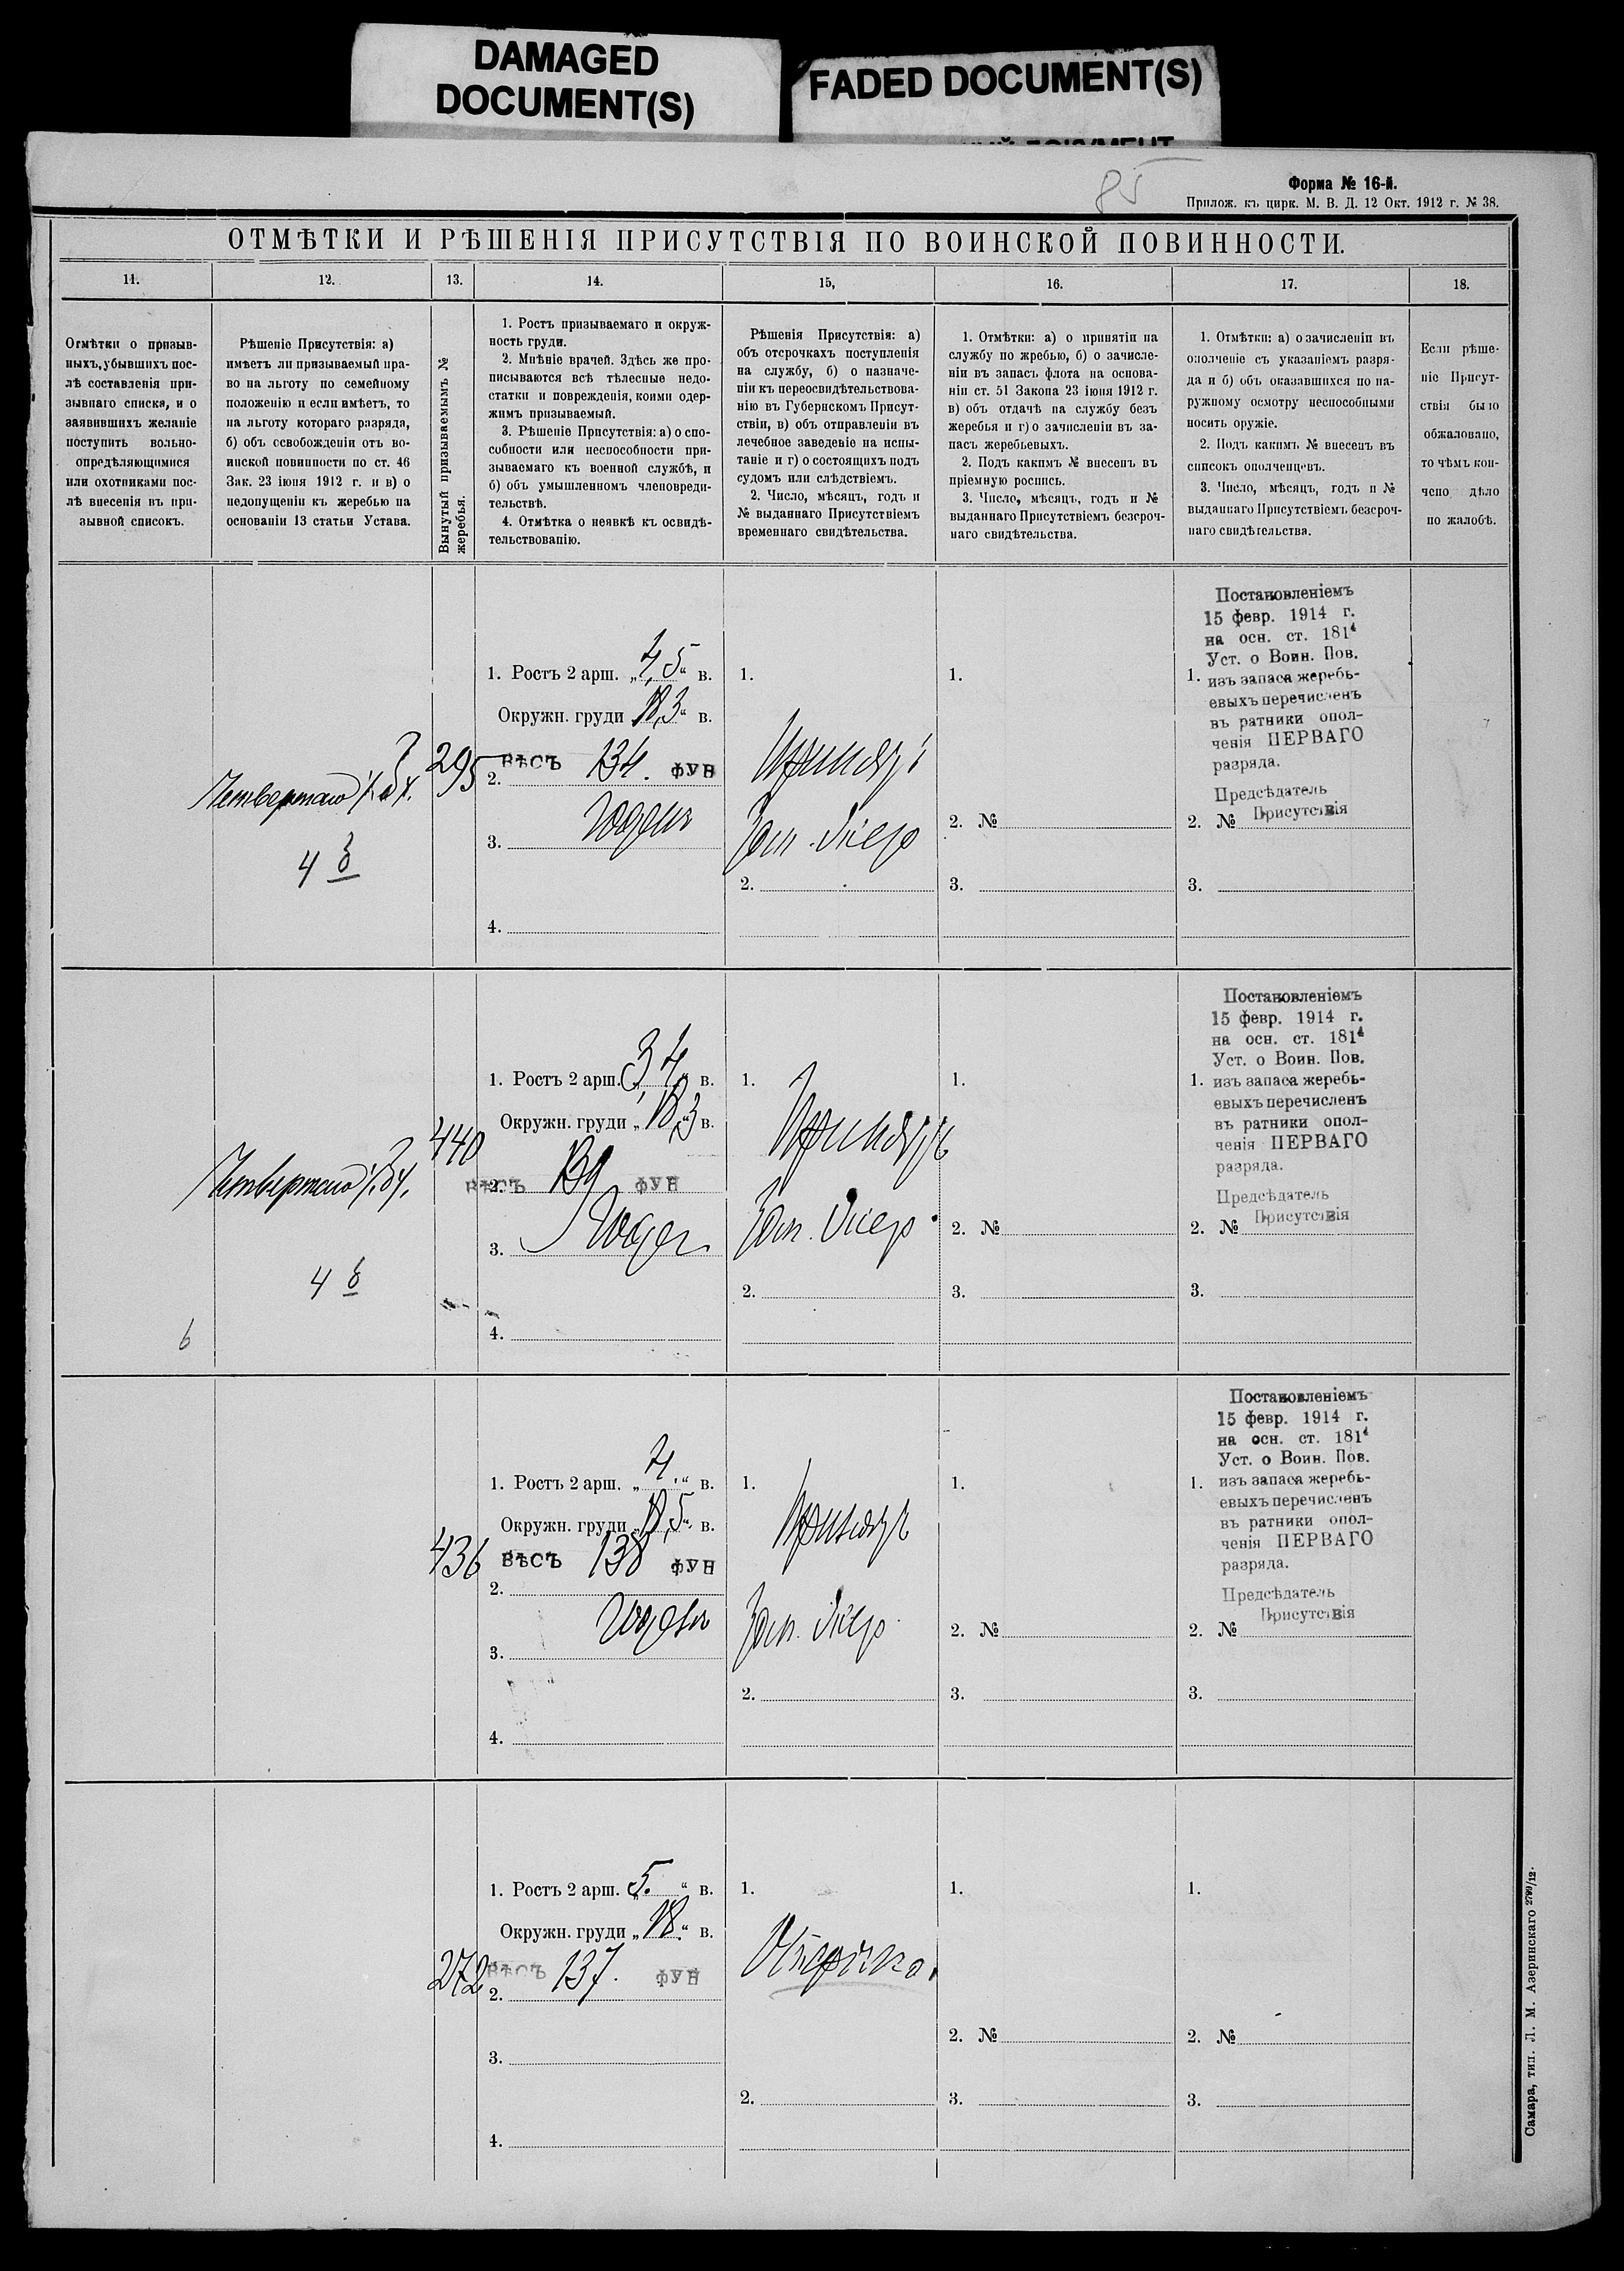 DAMAGED
DOCUMENT(S)
FADED DOCUMENT(S)
85
Форма № 16-й.
Прилож. къ цирк. М. В. Д. 12 Окт. 1912 г. № 38.
ОТМѢТКИ И РѢШЕНІЯ ПРИСУТСТВІЯ ПО ВОИНСКОЙ ПОВИННОСТИ.
11.
12.
13.
14.
15,
16.
17.
18.
Отмѣтки о призыв-
ныхъ, убывшихъ пос-
лѣ составленія при-
зывнаго списка, и о
заявившихъ желаніе
поступить вольно-
опредѣляющимися
или охотниками пос-
лѣ внесенія въ при-
зывной списокъ.
Рѣшеніе Присутствія: а)
имѣетъ ли призываемый пра-
во на льготу по семейному
положенію и если имѣетъ, то
на льготу котораго разряда,
б) объ освобожденіи отъ во-
инской повинности по ст. 46
Зак. 23 іюня 1912 г. и в) о
недопущеніи къ жеребью на
основаніи 13 статьи Устава.
Вынутый призываемымъ №
жеребья.
1. Ростъ призываемаго и окруж-
ность груди.
2. Мнѣніе врачей. Здѣсь же про-
писываются всѣ тѣлесные недо-
статки и поврежденія, коими одер-
жимъ призываемый.
3. Рѣшеніе Присутствія: а) о спо-
собности или неспособности при-
зываемаго къ военной службѣ, и
б) объ умышленномъ членовреди-
тельствѣ.
4. Отмѣтка о неявкѣ къ освидѣ-
тельствованію.
Рѣшенія Присутствія: а)
объ отсрочкахъ поступленія
на службу, б) о назначе-
ніи къ переосвидѣтельствова-
нію въ Губернскомъ Присут-
ствіи, в) объ отправленіи въ
лечебное заведеніе на испы-
таніе и г) о состоящихъ подъ
судомъ или слѣдствіемъ.
2. Число, мѣсяцъ, годъ и
№ выданнаго Присутствіемъ
временнаго свидѣтельства.
1. Отмѣтки: а) о принятіи на
службу по жребью, б) о зачисле-
ніи въ запасъ флота на основа-
ніи ст. 51 Закона 23 іюня 1912 г.
в) объ отдачѣ на службу безъ
жеребья и г) о зачисленіи въ за-
пасъ жеребьевыхъ.
2. Подъ какимъ № внесенъ въ
пріемную роспись.
3. Число, мѣсяцъ, годъ и №
выданнаго Присутствіемъ безсроч-
наго свидѣтельства.
1. Отмѣтки: а) о зачисленіи въ
ополченіе съ указаніемъ разря-
да и б) объ оказавшихся по на-
ружному осмотру неспособными
носить оружіе.
2. Подъ какимъ № внесенъ въ
списокъ ополченцевъ.
3. Число, мѣсяцъ, годъ и №
выданнаго Присутствіемъ безсроч-
наго свидѣтельства.
Если рѣше-
ніе Присут-
ствія было
обжаловано,
то чѣмъ кон-
чено дѣло
по жалобѣ.
Четвертаго
4
295
1. Ростъ 2 арш. „4,5“ в.
Окружн. груди 18,3“ в.
ВѢСЪ 134. ФУН
2.
3. Годенъ
4.
1.
Зап.
2.
1.
2. №
3.
Постановленіемъ
15 февр. 1914 г.
на осн. ст. 181⁴
Уст. о Воин. Пов.
1. изъ запаса жеребь-
евыхъ перечисленъ
въ ратники опол-
ченія ПЕРВАГО
разряда.
Предсѣдатель
Присутствія
2. №
3.
Четвертаго
4
6
440
1. Ростъ 2 арш. „3,4“ в.
Окружн. груди „18,3“ в.
ВѢСЪ ФУН
2.
3. Годен
4.
1.
Зап.
2.
1.
2. №
3.
Постановленіемъ
15 февр. 1914 г.
на осн. ст. 181⁴
Уст. о Воин. Пов.
1. изъ запаса жеребь-
евыхъ перечисленъ
въ ратники опол-
ченія ПЕРВАГО
разряда.
Предсѣдатель
Присутствія
2. №
3.
436
1. Ростъ 2 арш. „4.“ в.
Окружн. груди „18,5“ в.
ВѢСЪ 138 ФУН
2.
3. Годенъ
4.
1.
Зап.
2.
1.
2. №
3.
Постановленіемъ
15 февр. 1914 г.
на осн. ст. 181⁴
Уст. о Воин. Пов.
1. изъ запаса жеребь-
евыхъ перечисленъ
въ ратники опол-
ченія ПЕРВАГО
разряда.
Предсѣдатель
Присутствія
2. №
3.
272
1. Ростъ 2 арш. „5.“ в.
Окружн. груди „18.“ в.
ВѢСЪ 137. ФУН
2.
3.
4.
1.
Отсрочка.
2.
1.
2. №
3.
1.
2. №
3.
Самара, тип. Л. М. Азеринскаго 2799/12.